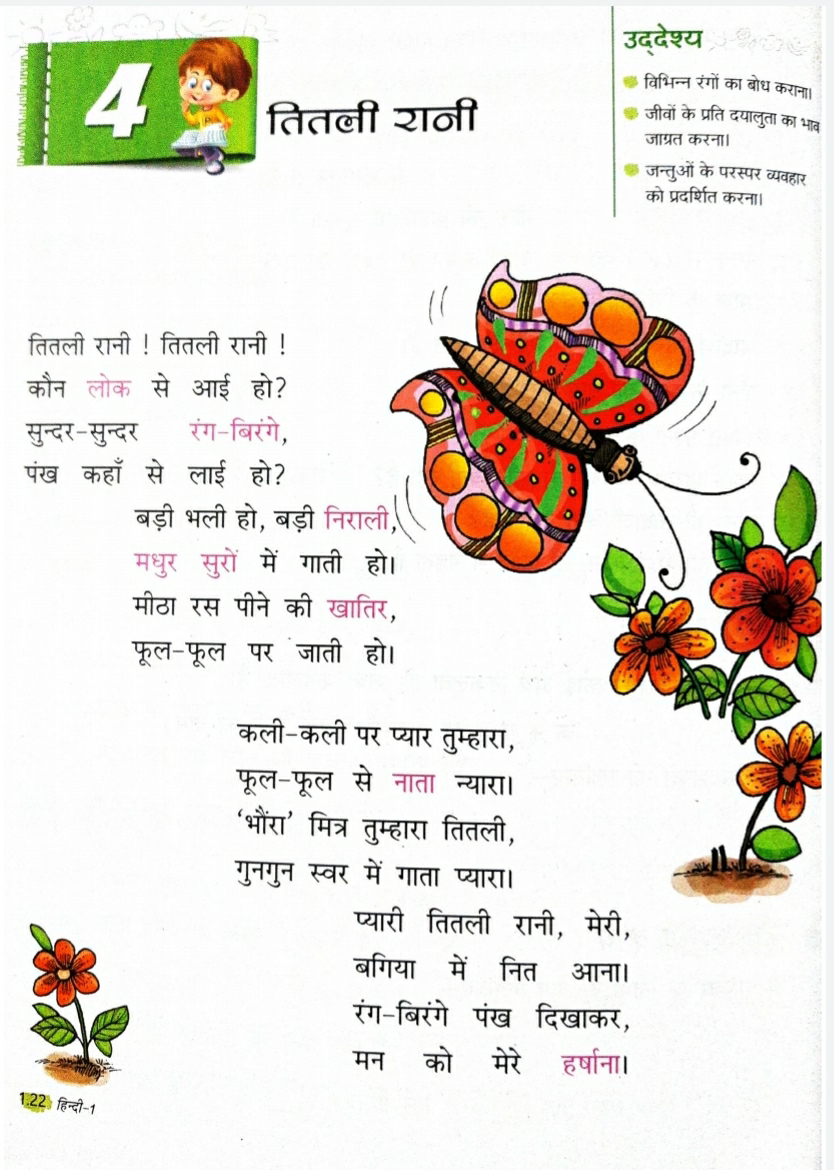 4
तितली रानी
उद्देश्य
विभिन्न रंगों का बोध कराना।
जीवों के प्रति दयालुता का भाव
जाग्रत करना।
जन्तुओं के परस्पर व्यवहार
को प्रदर्शित करना।
तितली रानी ! तितली रानी !
कौन लोक से आई हो?
सुन्दर-सुन्दर रंग-बिरंगे,
पंख कहाँ से लाई हो?
बड़ी भली हो, बड़ी निराली,
मधुर सुरों में गाती हो।
मीठा रस पीने की खातिर,
फूल-फूल पर जाती हो।
कली-कली पर प्यार तुम्हारा,
फूल-फूल से नाता न्यारा।
‘भौंरा’ मित्र तुम्हारा तितली,
गुनगुन स्वर में गाता प्यारा।
प्यारी तितली रानी, मेरी,
बगिया में नित आना।
रंग-बिरंगे पंख दिखाकर,
मन को मेरे हर्षाना।
1.22 हिन्दी-1